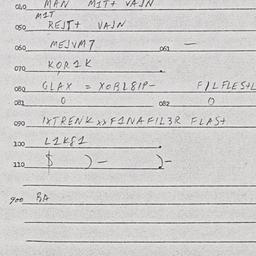 010 MAN M1T+ VAJN
M1T
050 REJT+ VAJN
060 MEJVM7 061 —
070 KOR1K
080 GLAX = XORL8IP- FILFLES+L
081 0 082 0
090 IXTRENK xx FINAFIL3R FLAS+
100 L1K81
110 $ )- )-
900 RA